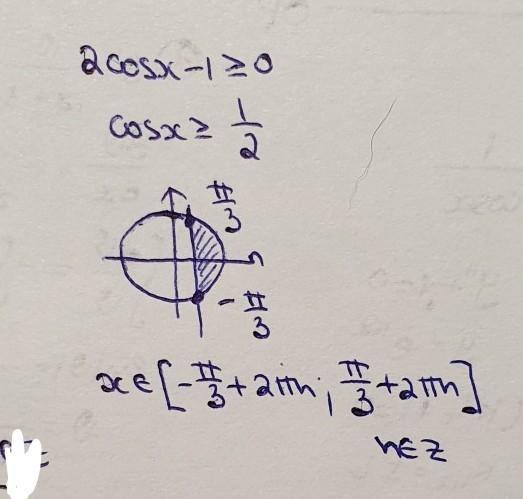 2cosx-1≥0
cosx≥ 1/2
π/3
-π/3
x∈[-π/3+2πn; π/3+2πn]
n∈Z